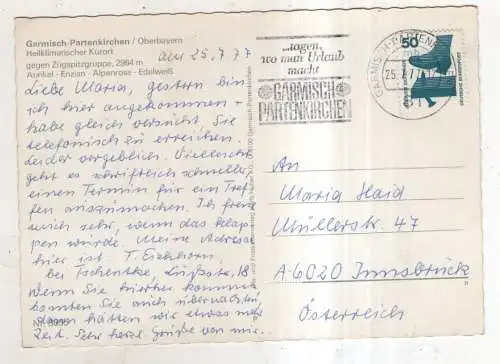 Garmisch-Partenkirchen / Oberbayern
Heilklimatischer Kurort
gegen Zugspitzgruppe, 2964 m
Aurikel - Enzian - Alpenrose - Edelweiß
am 25.7.77
Liebe Maria, gestern bin
ich hier angekommen -
habe gleich versucht Sie
telefonisch zu erreichen.
Leider vergeblich. Vielleicht
geht es schriftlich schneller
einen Termin für ein Tref-
fen auszumachen. Ich freue
mich sehr, wenn das klap-
pen würde. Meine Adresse
hier ist. T. Eichhorn,
bei Tschentke, 18
Wenn Sie hierher kommen
könnten Sie auch übernachten,
dann hätten wir etwas mehr
Zeit. Sehr herzl. Grüße von mir
Nr.
...tagen,
wo man Urlaub
macht
GARMISCH
PARTENKIRCHEN
GARMISCH-PARTENKIRCHEN
25.7.77
50
An
Maria Haid
Müllerstr. 47
A-6020 Innsbrück
Österreich